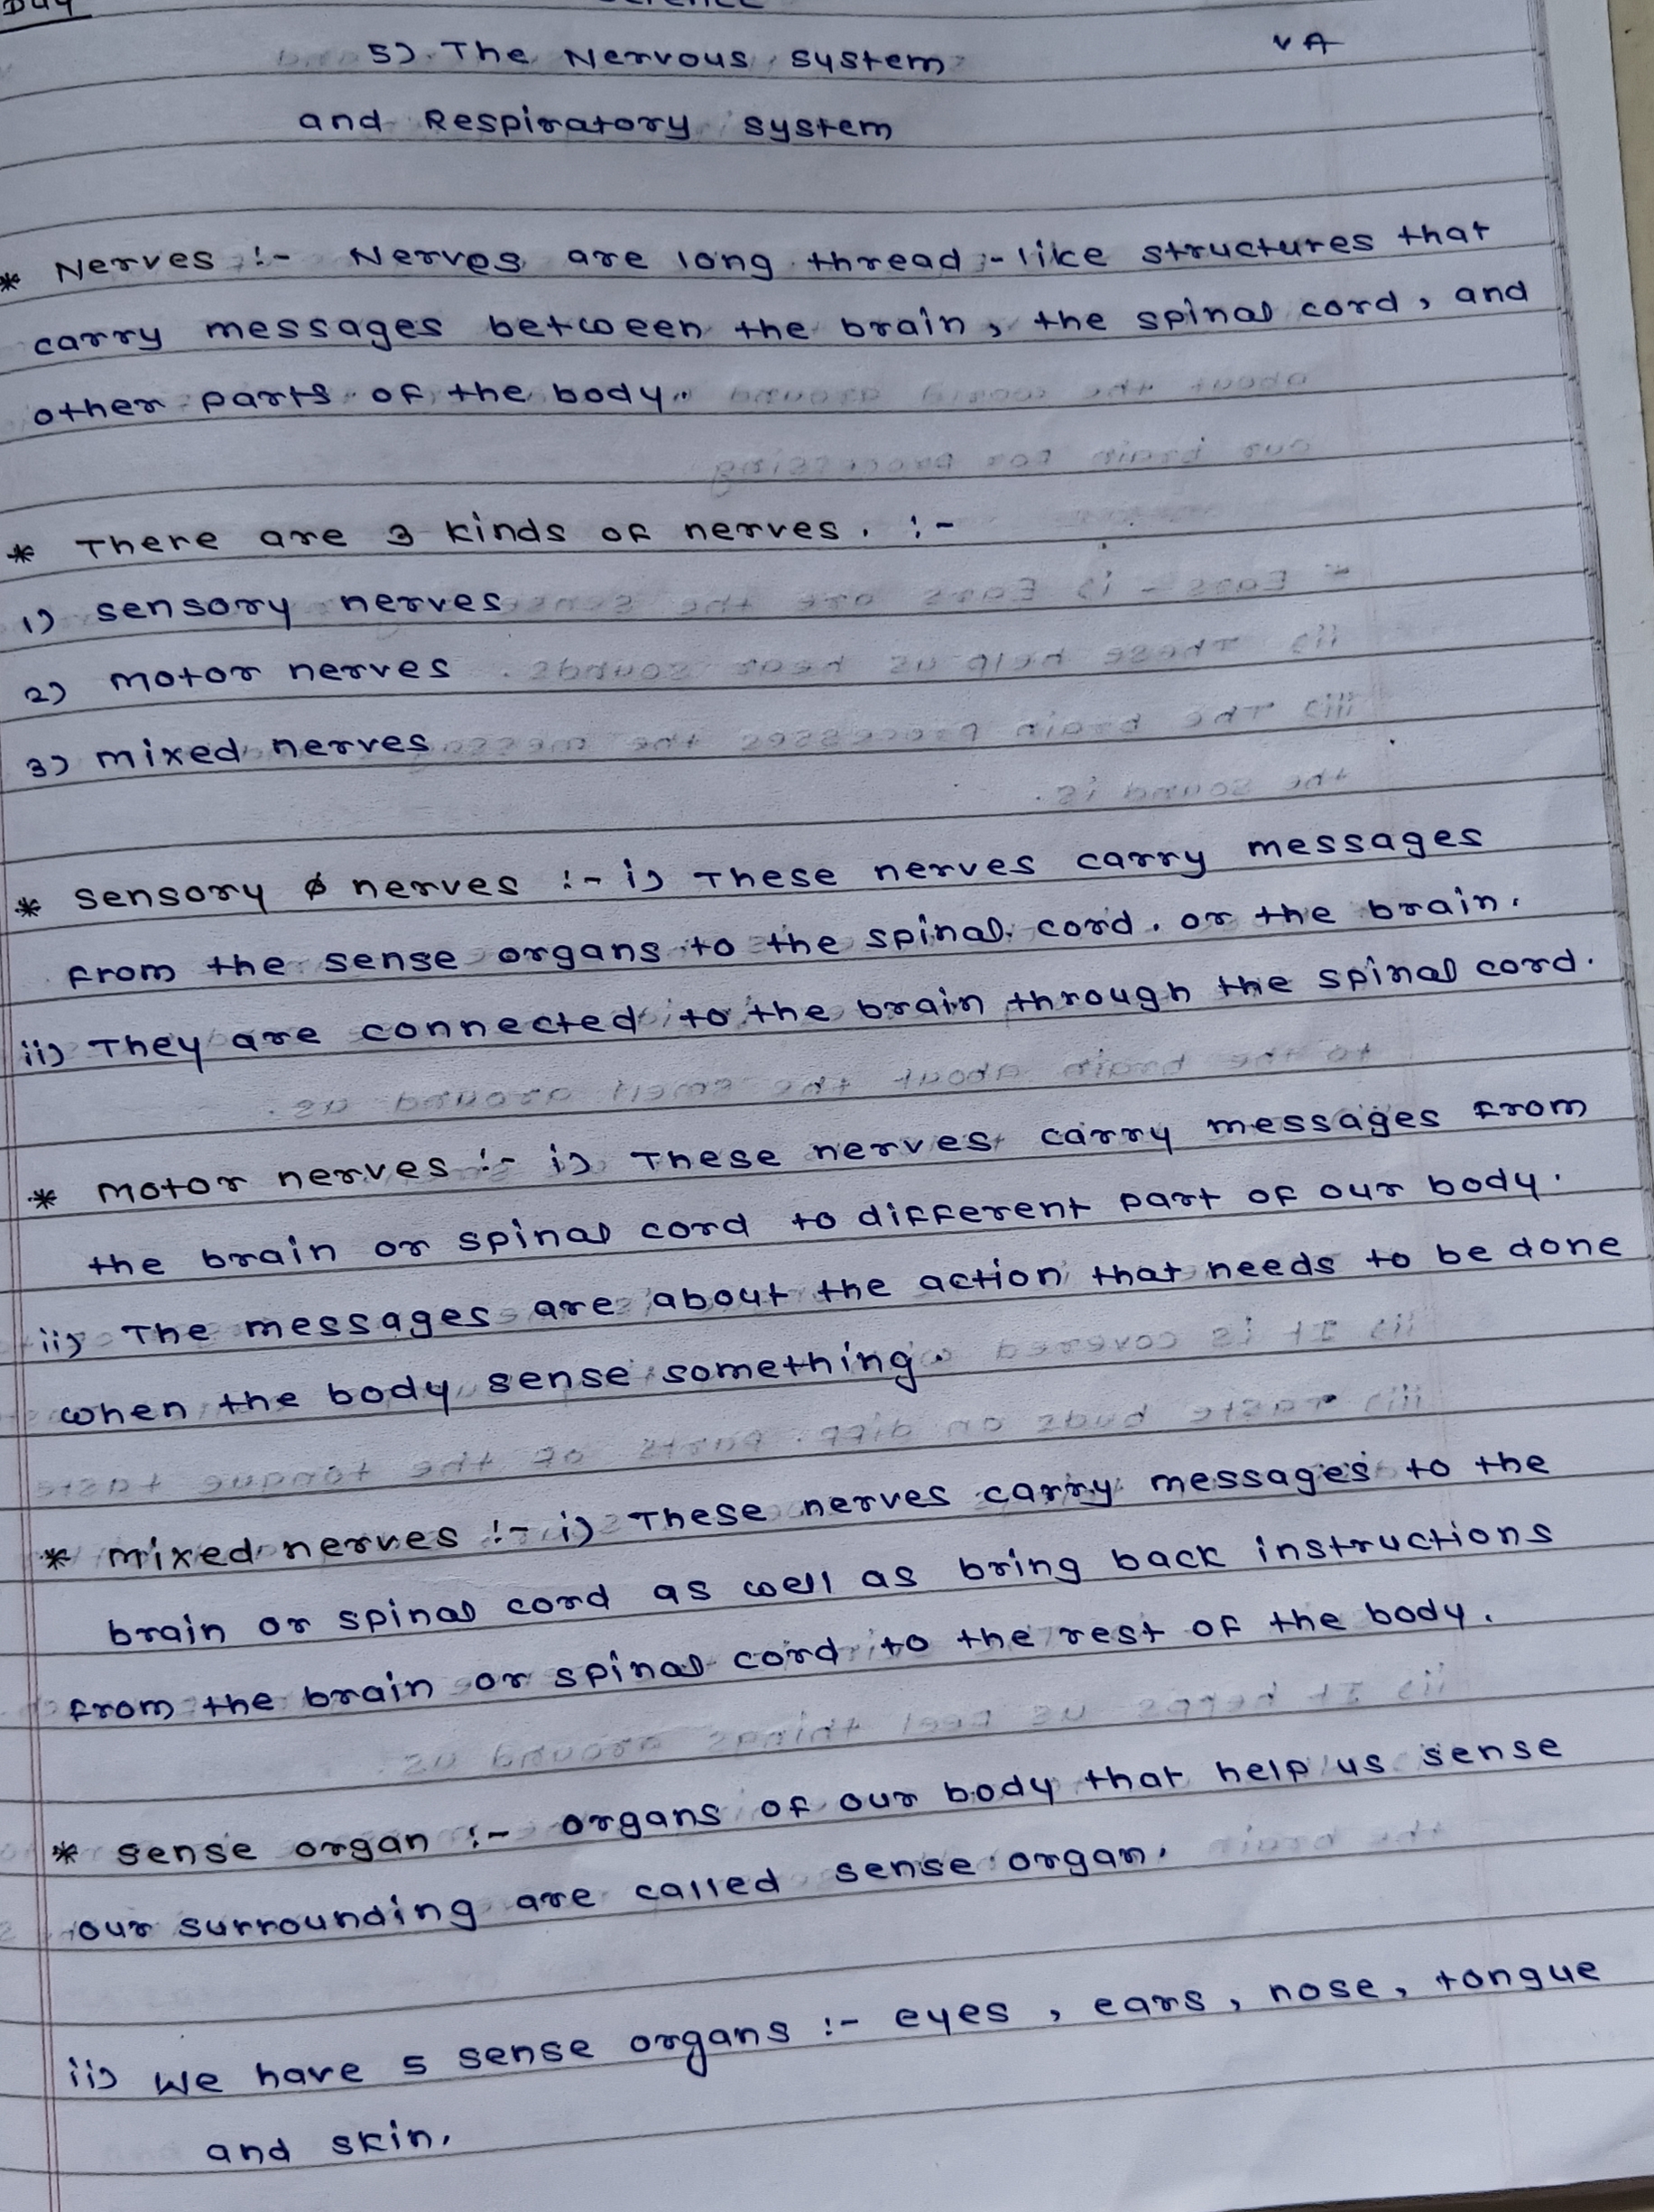 5). The Nervous system
and Respiratory system
* Nerves :- Nerves are long thread-like structures that
carry messages between the brain, the spinal cord, and
other parts of the body.
* There are 3 kinds of nerves. :-
1) sensory nerves
2) motor nerves
3) mixed nerves
* sensory nerves :- i) These nerves carry messages
from the sense organs to the spinal cord. or the brain.
ii) They are connected to the brain through the spinal cord.
* motor nerves :- i) These nerves carry messages from
the brain or spinal cord to different part of our body.
ii) The messages are about the action that needs to be done
when the body sense something.
* mixed nerves :- i) These nerves carry messages to the
brain or spinal cord as well as bring back instructions
from the brain or spinal cord to the rest of the body.
* sense organ :- organs of our body that help us sense
our surrounding are called sense organ.
ii) we have 5 sense organs :- eyes, ears, nose, tongue
and skin.